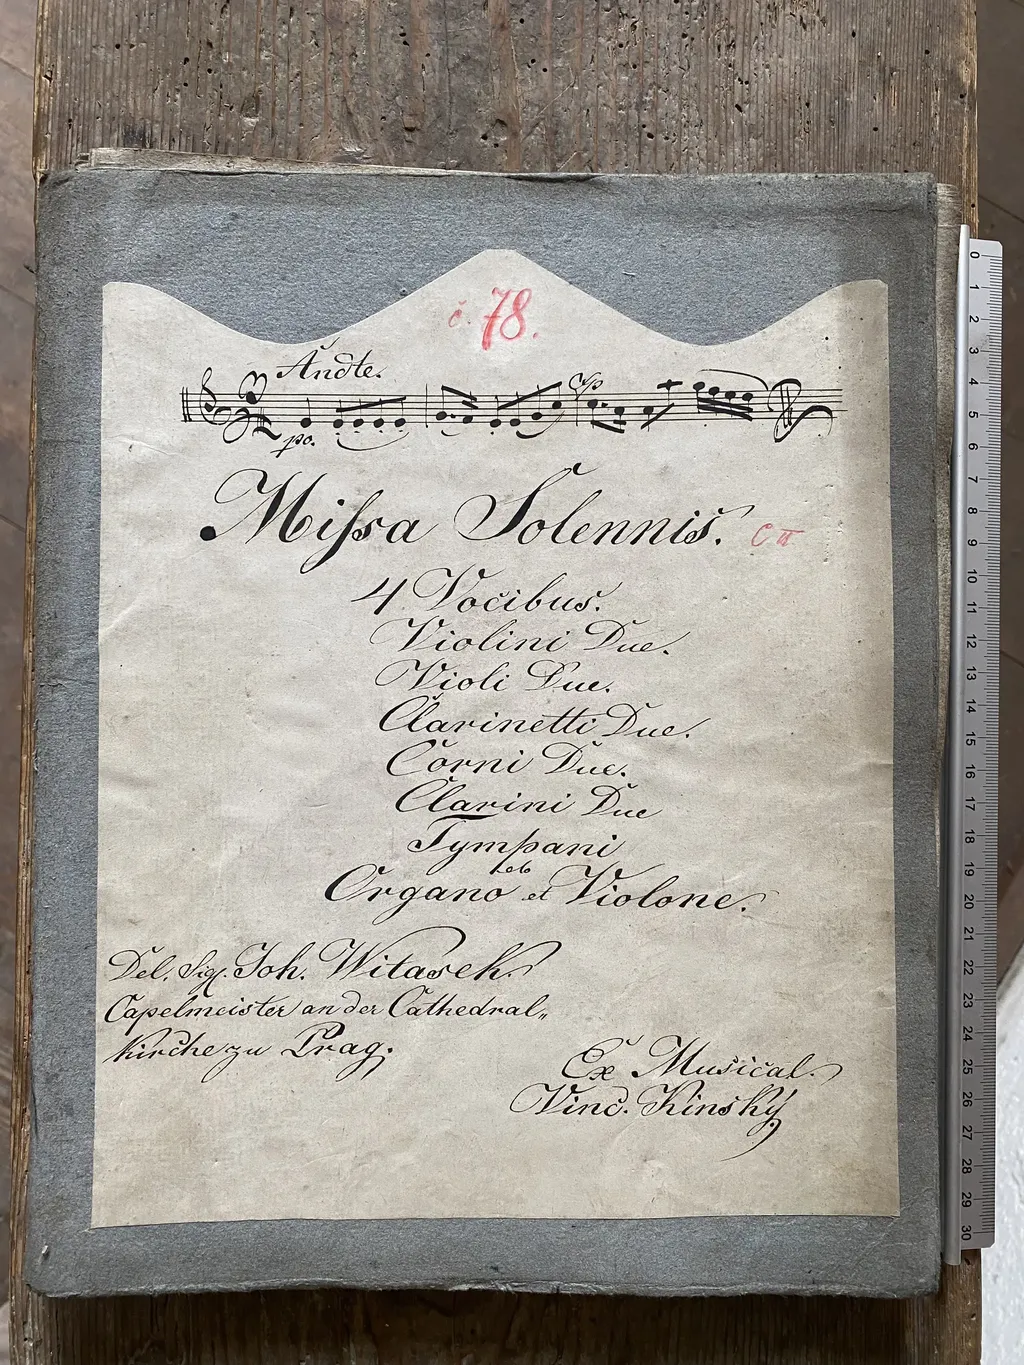 č. 78.
Andte.
po.
Missa Solennis. C π
4 Vocibus.
Violini Due.
Violi Due.
Clarinetti Due.
Corni Due.
Clarini Due
Tympani
Organo et Violone.
Del. Sigr. Joh. Witasek.
Capelmeister an der Cathedral„
Kirche zu Prag.
Ex Musical.
Vinc. Kinský
0
1
2
3
4
5
6
7
8
9
10
11
12
13
14
15
16
17
18
19
20
21
22
23
24
25
26
27
28
29
30